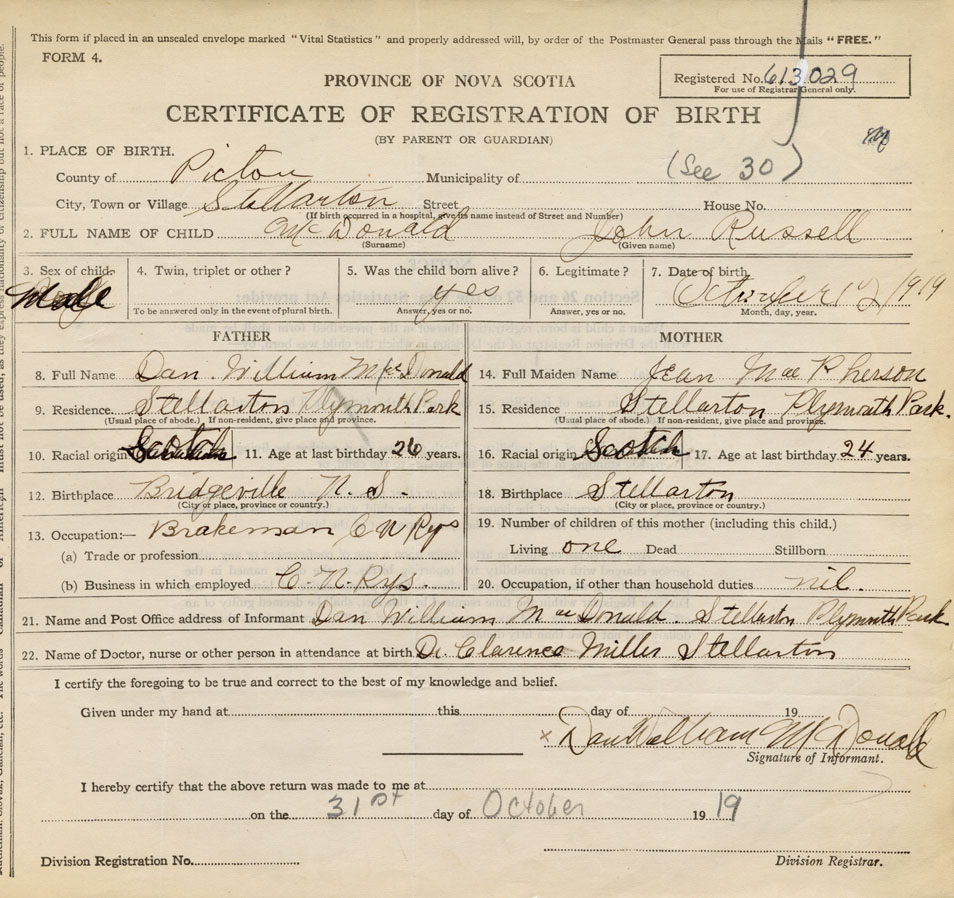 This form if placed in an unsealed envelope marked "Vital Statistics" and properly addressed will, by order of the Postmaster General pass through the Mails "FREE."
FORM 4.
PROVINCE OF NOVA SCOTIA
Registered No. 613029
For use of Registrar General only.
CERTIFICATE OF REGISTRATION OF BIRTH
(BY PARENT OR GUARDIAN)
1. PLACE OF BIRTH.
(See 30)
County of Pictou Municipality of
City, Town or Village Stellarton Street House No.
(If birth occurred in a hospital, give its name instead of Street and Number)
2. FULL NAME OF CHILD McDonald John Russell
(Surname) (Given name)
3. Sex of child 4. Twin, triplet or other? 5. Was the child born alive? 6. Legitimate? 7. Date of birth
Male yes October 12 1919
To be answered only in the event of plural birth. Answer, yes or no. Answer, yes or no. Month, day, year.
FATHER MOTHER
8. Full Name Dan William MacDonald 14. Full Maiden Name Jean MacPherson
9. Residence Stellarton Plymouth Park 15. Residence Stellarton Plymouth Park.
(Usual place of abode.) If non-resident, give place and province. (Usual place of abode.) If non-resident, give place and province.
10. Racial origin Scotch 11. Age at last birthday 26 years. 16. Racial origin Scotch 17. Age at last birthday 24 years.
12. Birthplace Bridgeville N.S. 18. Birthplace Stellarton
(City or place, province or country.) (City or place, province or country.)
13. Occupation:— Brakeman C N Rys 19. Number of children of this mother (including this child.)
(a) Trade or profession Living one Dead Stillborn
(b) Business in which employed C. N. Rys. 20. Occupation, if other than household duties nil.
21. Name and Post Office address of Informant Dan William MacDonald. Stellarton Plymouth Park
22. Name of Doctor, nurse or other person in attendance at birth Dr Clarence Miller Stellarton
I certify the foregoing to be true and correct to the best of my knowledge and belief.
Given under my hand at this day of 19
x Dan William McDonald
Signature of Informant.
I hereby certify that the above return was made to me at
on the 31st day of October 1919
Division Registration No. Division Registrar.